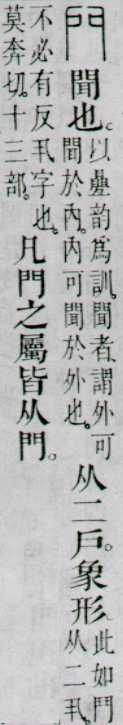 門聞也。以疊韵爲訓。聞者、謂外可聞於內。內可聞於外也。从二戶。象形。此如鬥从二丮。
不必有反丮字也。莫奔切。十三部。凡門之屬皆从門。